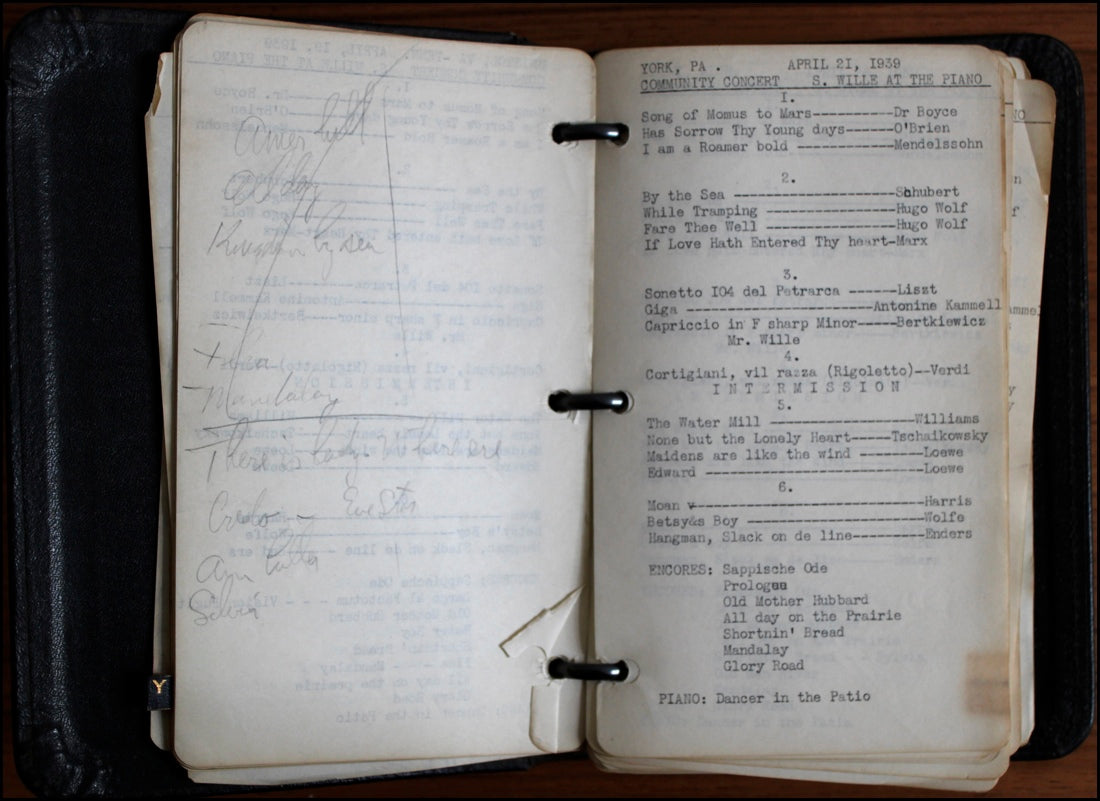 Kingdom by sea
Mandalay
There is lady
Credo - Eve Star
Y
YORK, PA . APRIL 21, 1939
COMMUNITY CONCERT S. WILLE AT THE PIANO
I.
Song of Momus to Mars----------Dr Boyce
Has Sorrow Thy Young days------O'Brien
I am a Roamer bold ------------Mendelssohn
2.
By the Sea --------------------Schubert
While Tramping ----------------Hugo Wolf
Fare Thee Well ----------------Hugo Wolf
If Love Hath Entered Thy heart-Marx
3.
Sonetto IO4 del Petrarca ------Liszt
Giga -----------------------Antonine Kammell
Capriccio in F sharp Minor-----Bertkiewicz
Mr. Wille
4.
Cortigiani, vil razza (Rigoletto)--Verdi
I N T E R M I S S I O N
5.
The Water Mill ------------------Williams
None but the Lonely Heart-----Tschaikowsky
Maidens are like the wind --------Loewe
Edward ---------------------------Loewe
6.
Moan v----------------------------Harris
Betsy&s Boy ----------------------Wolfe
Hangman, Slack on de line---------Enders
ENCORES: Sappische Ode
Prologue
Old Mother Hubbard
All day on the Prairie
Shortnin' Bread
Mandalay
Glory Road
PIANO: Dancer in the Patio